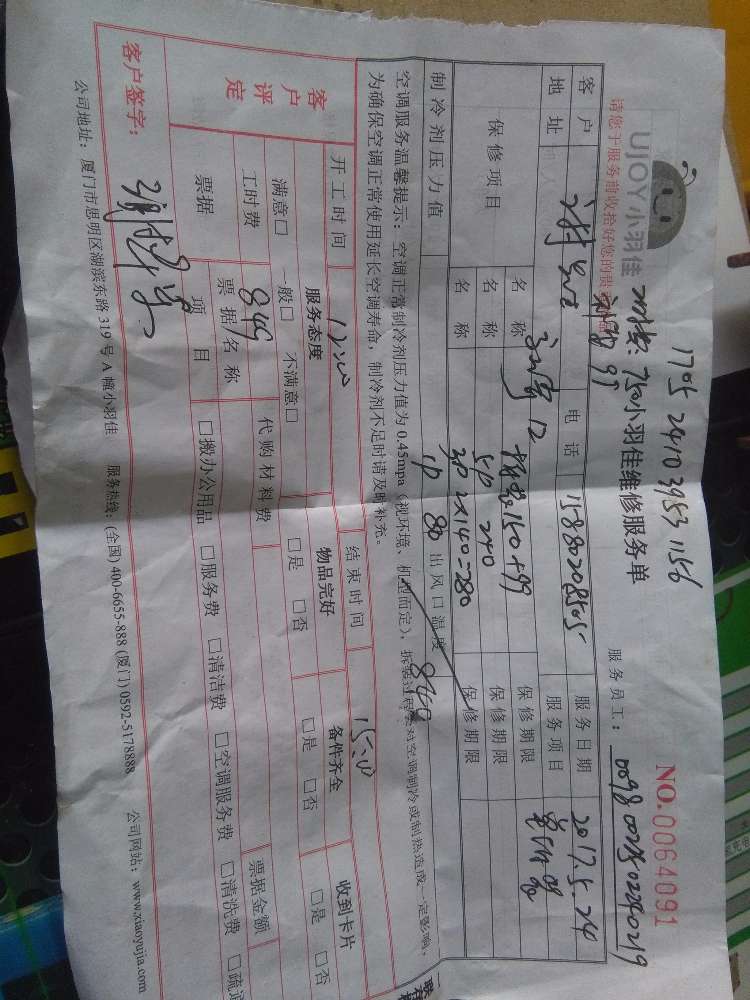 1705 2410 3953 1156
UJOY小羽佳 小羽佳维修服务单
NO.0064091
请您于服务前收拾好您的贵
服务员工：
客户 电话 15880208505 服务日期 2017.5.24
地址 服务项目
保修项目 名称 150+99 保修期限
名称 5P 240 保修期限
名称 3P 2X140=280 保修期限
制冷剂压力值 1P 80 出风口温度 849
空调服务温馨提示：空调正常制冷剂压力值为0.45mpa（视环境、机型而定），拆装过程会对空调制冷或制热造成一定影响，
为确保空调正常使用延长空调寿命，制冷剂不足时请及时补充。
开工时间 12:00 结束时间 15:00
客户评定 服务态度 物品完好 备件齐全 收到卡片
满意□ 一般□ 不满意□ □是 □否 □是 □否 □是 □否
工时费 849 代购材料费
票据 票据名称 票据金额
项目 □搬办公用品 □服务费 □清洁费 □空调服务费 □清洗费 □疏
客户签字：
公司地址：厦门市思明区湖滨东路319号A幢小羽佳 服务热线：(全国) 400-6655-888 (厦门) 0592-5178888 公司网站：www.xiaoyujia.com